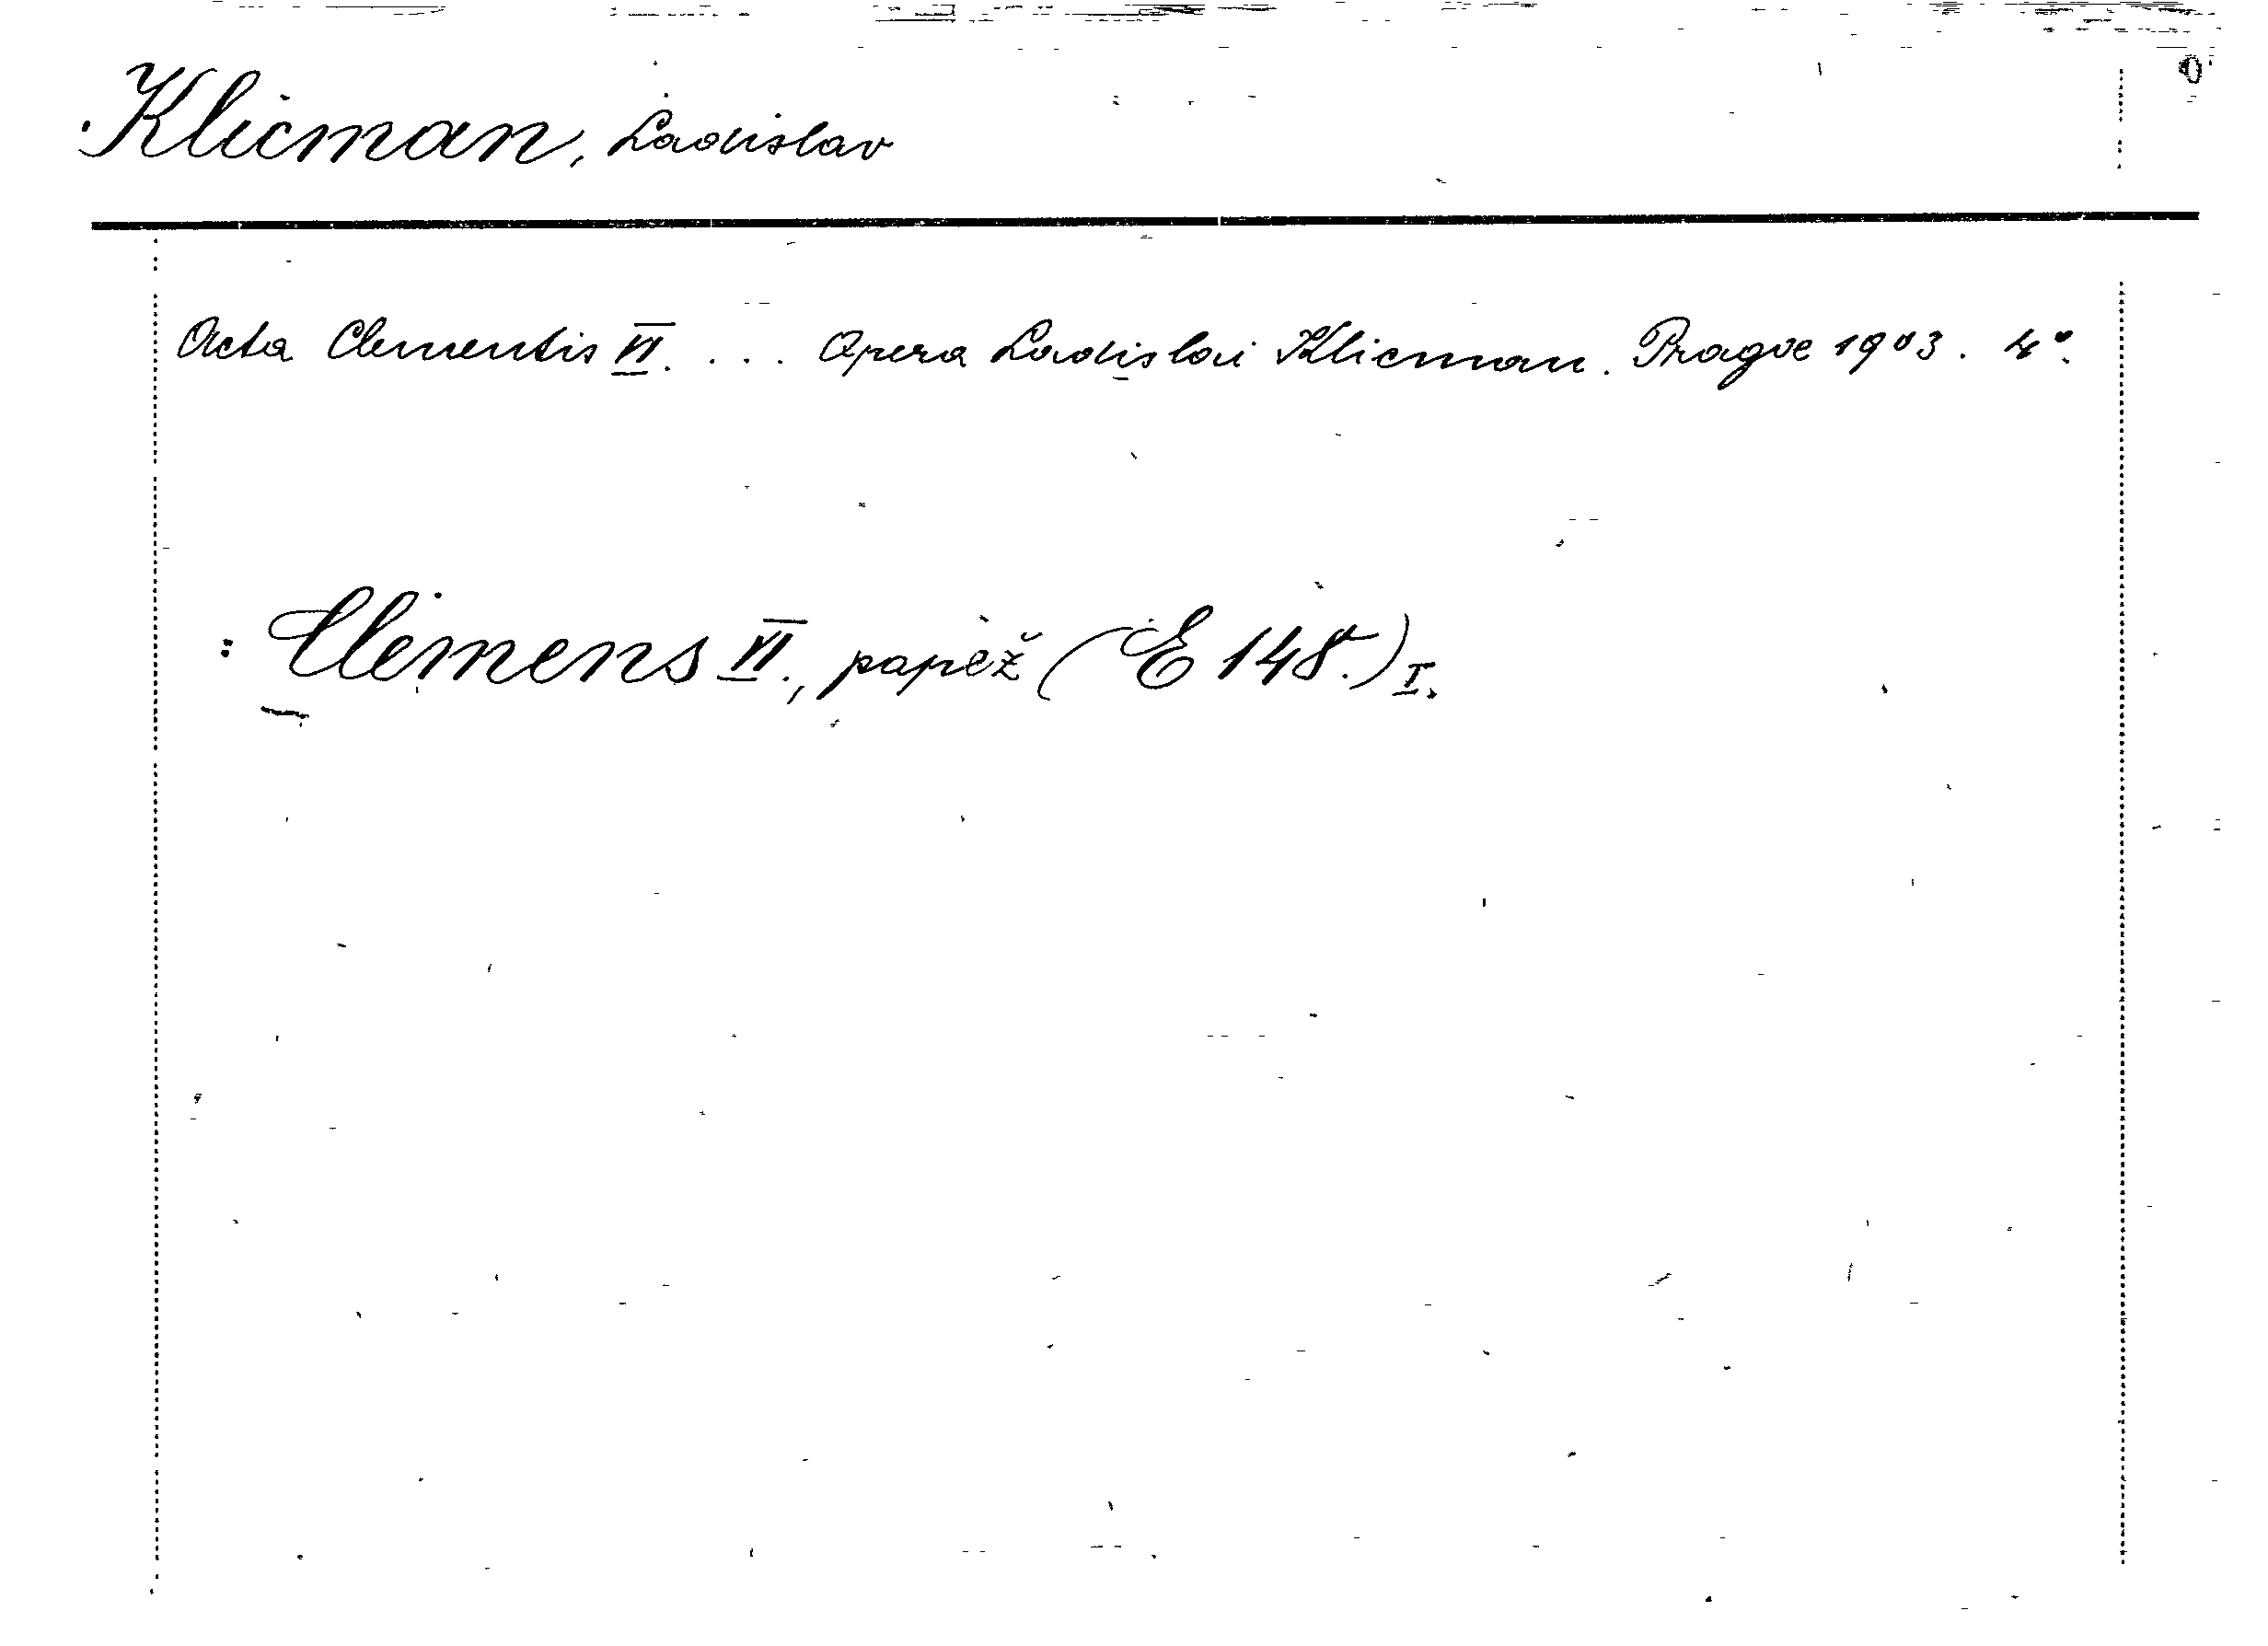 Klicman, Ladislav
Acta Clementis VI. ... Opera Ladislai Klicman. Pragae 1903. 4°.
: Clemens VI., papež (E 148.) I.